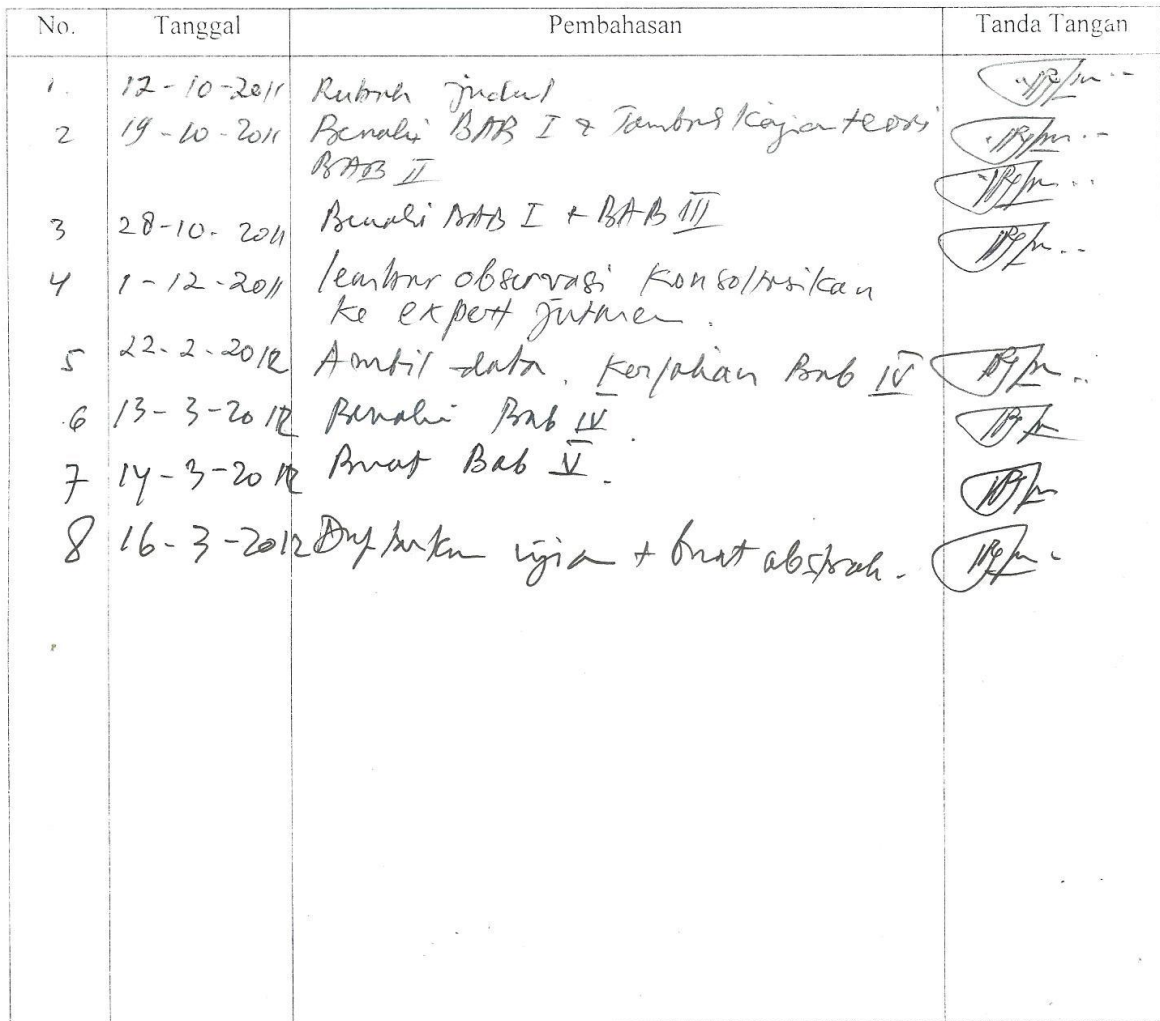 No. Tanggal Pembahasan Tanda Tangan
1. 12-10-2011 Rubah judul
2 19-10-2011 Benahi BAB I & Tambah kajian teori
BAB II
3 28-10-2011 Benahi BAB I + BAB III
4 1-12-2011 lembar observasi konsoltasikan
ke expert jutmen.
5 22-2-2012 Ambil data. Kerjakan Bab IV
6 13-3-2012 Benahi Bab IV.
7 14-3-2012 Buat Bab V.
8 16-3-2012 ujian + buat abstrak.